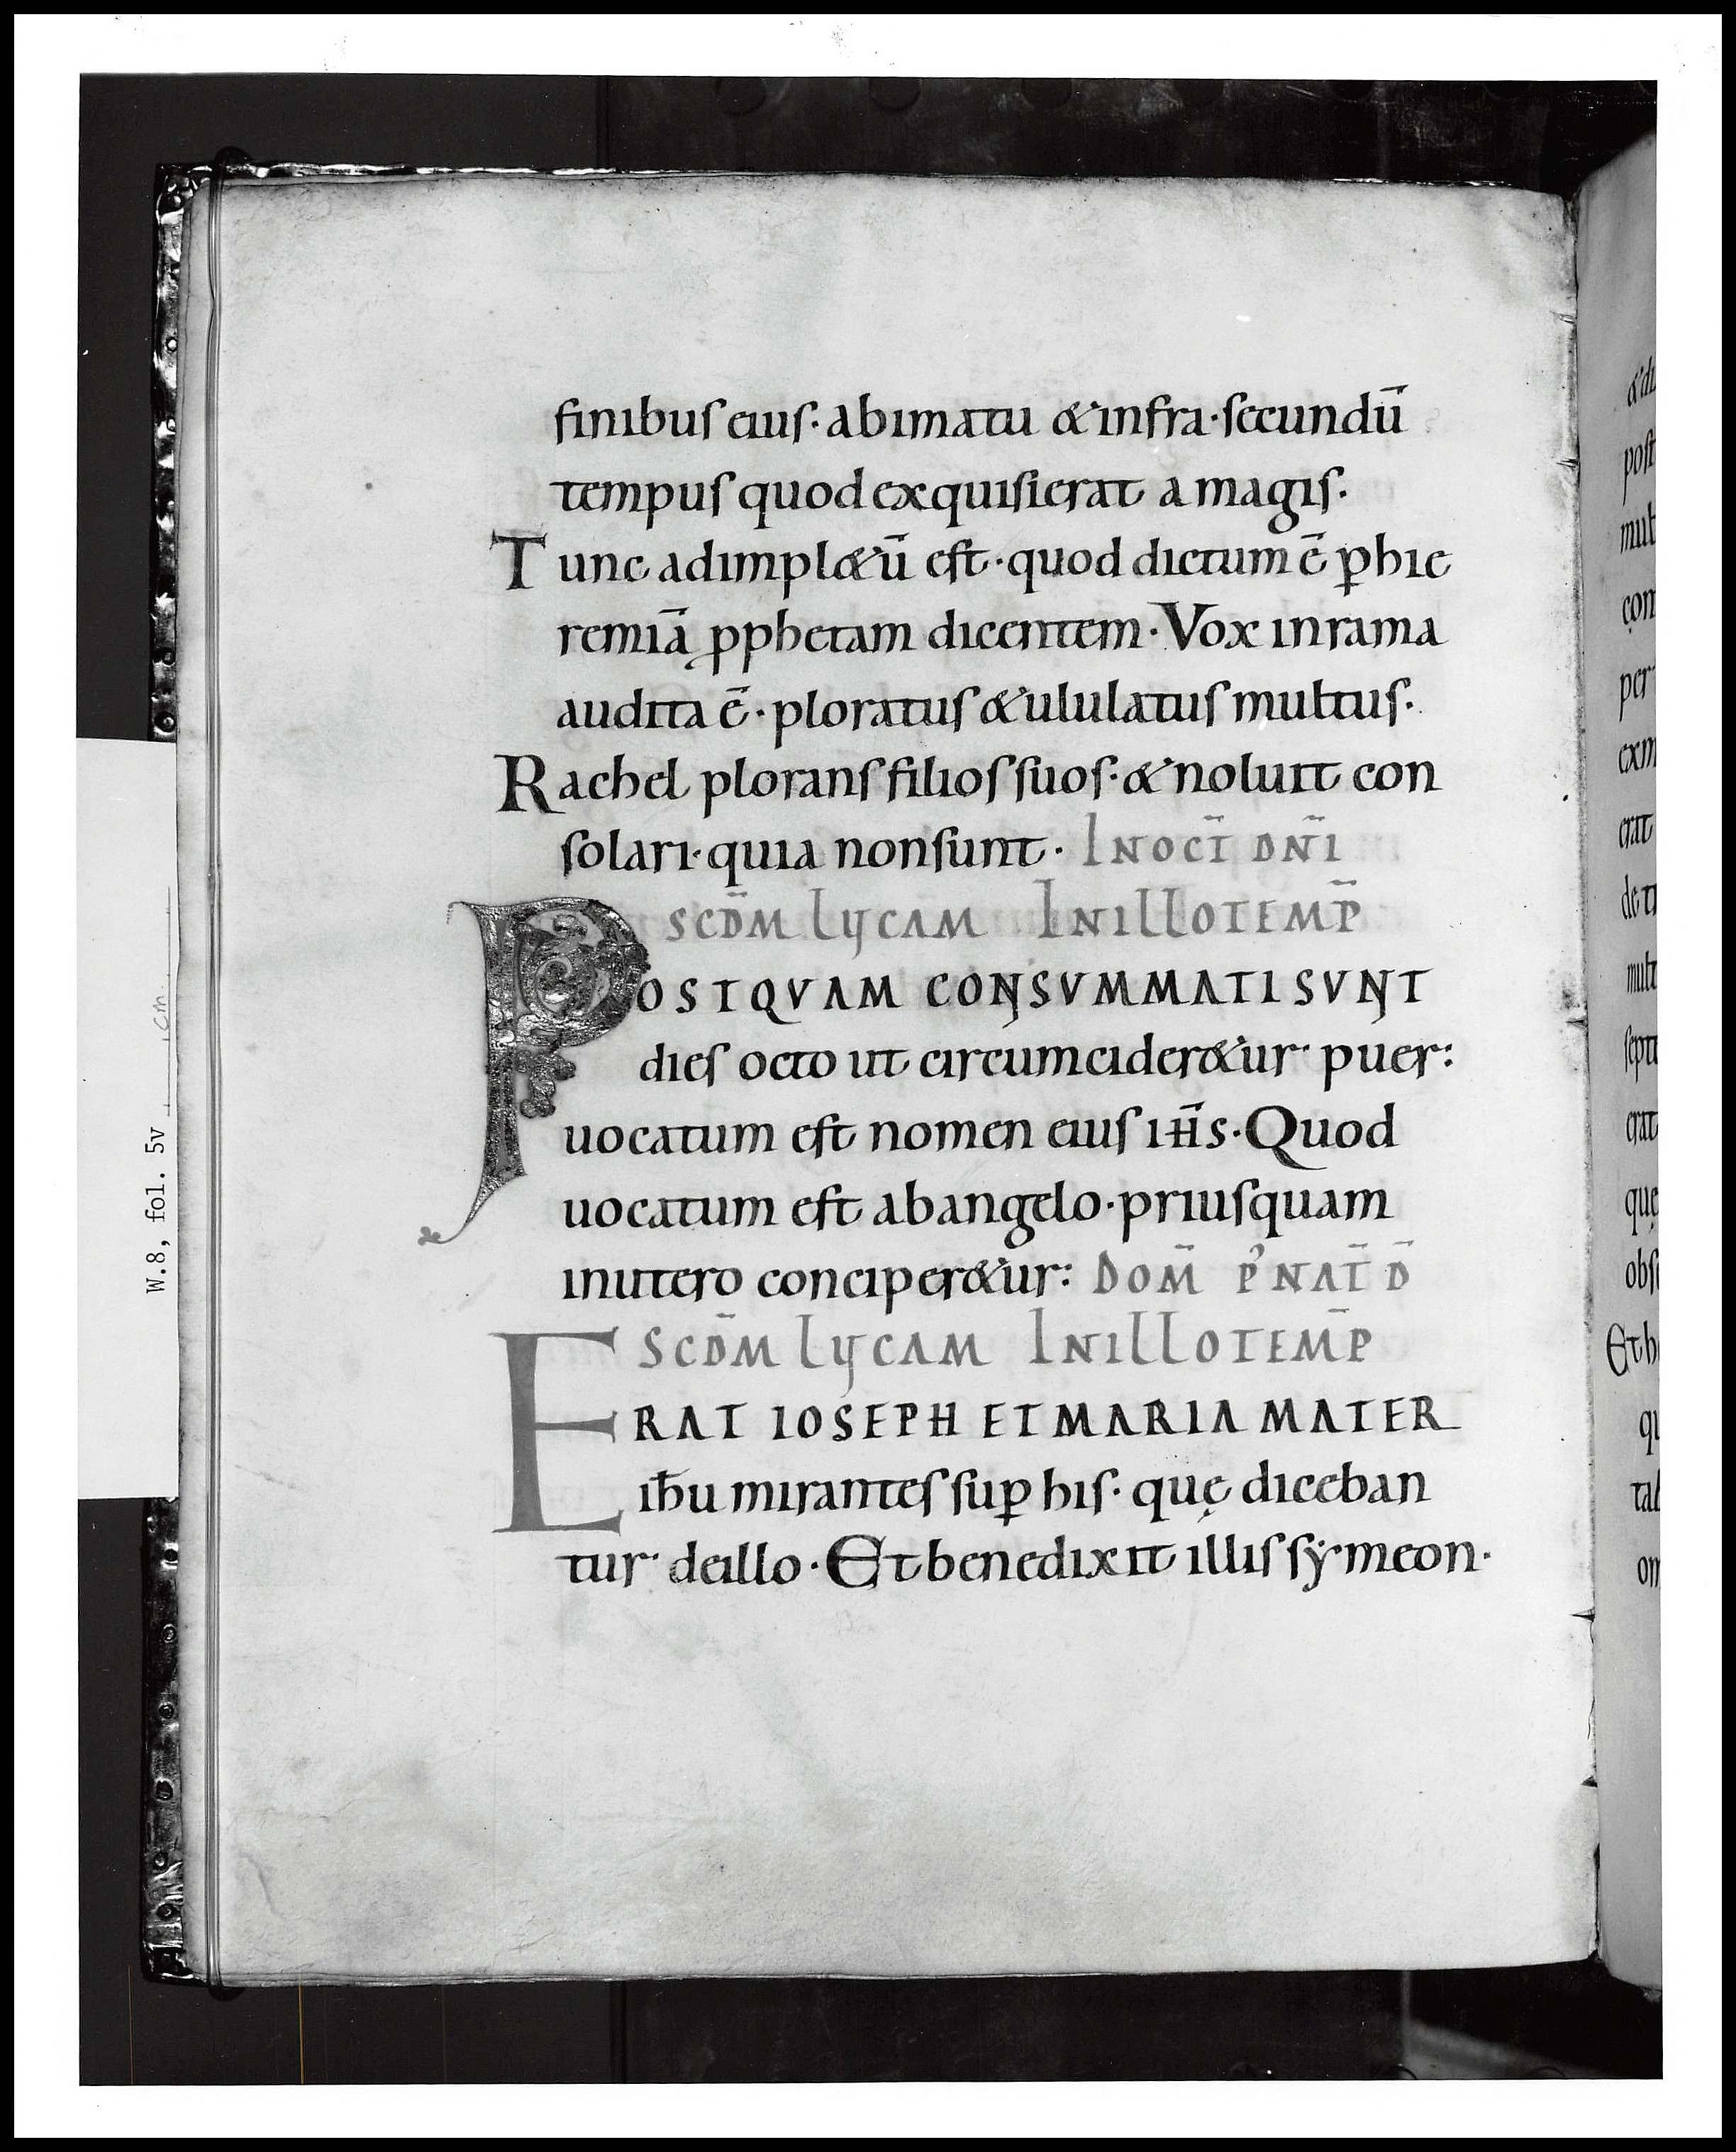 finibus eius· abimatu & infra· secundū
tempus quod exquisierat a magis·
Tunc adimpl&ū est· quod dictum ē p̱hie
remiā p̱phetam dicentem· Vox inrama
audita ē· ploratus & ululatus multus·
Rachel plorans filios suos· & noluit con
solari· quia non sunt· INOCT̄ DN̄I
SCD̄M LYCAM INILLOTEMP̄
POSTQVAM CONSVMMATI SVNT
dies octo ut circumcider&ur puer:
uocatum est nomen eius ιħ̄s· Quod
uocatum est abangelo· priusquam
inutero conciper&ur: DOM̄ P'NAT̄ D̄
SCD̄M LYCAM INILLOTEMP̄
ERAT IOSEPH ET MARIA MATER
iħu mirantes sup̱ his· quę diceban
tur deillo· Et benedixit illis sẏmeon·
W.8, fol. 5v
cm.